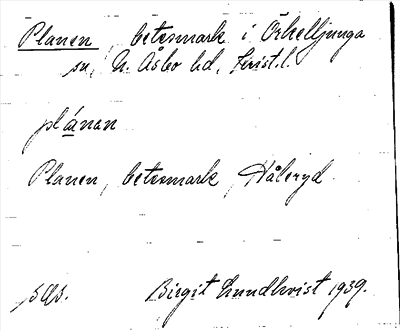 Planen, betesmark i Örkelljunga
sn, N. Åsbo hd, Krist. l.
plánan
Planen, betesmark, Håleryd.
Birgit Lundkvist 1939.